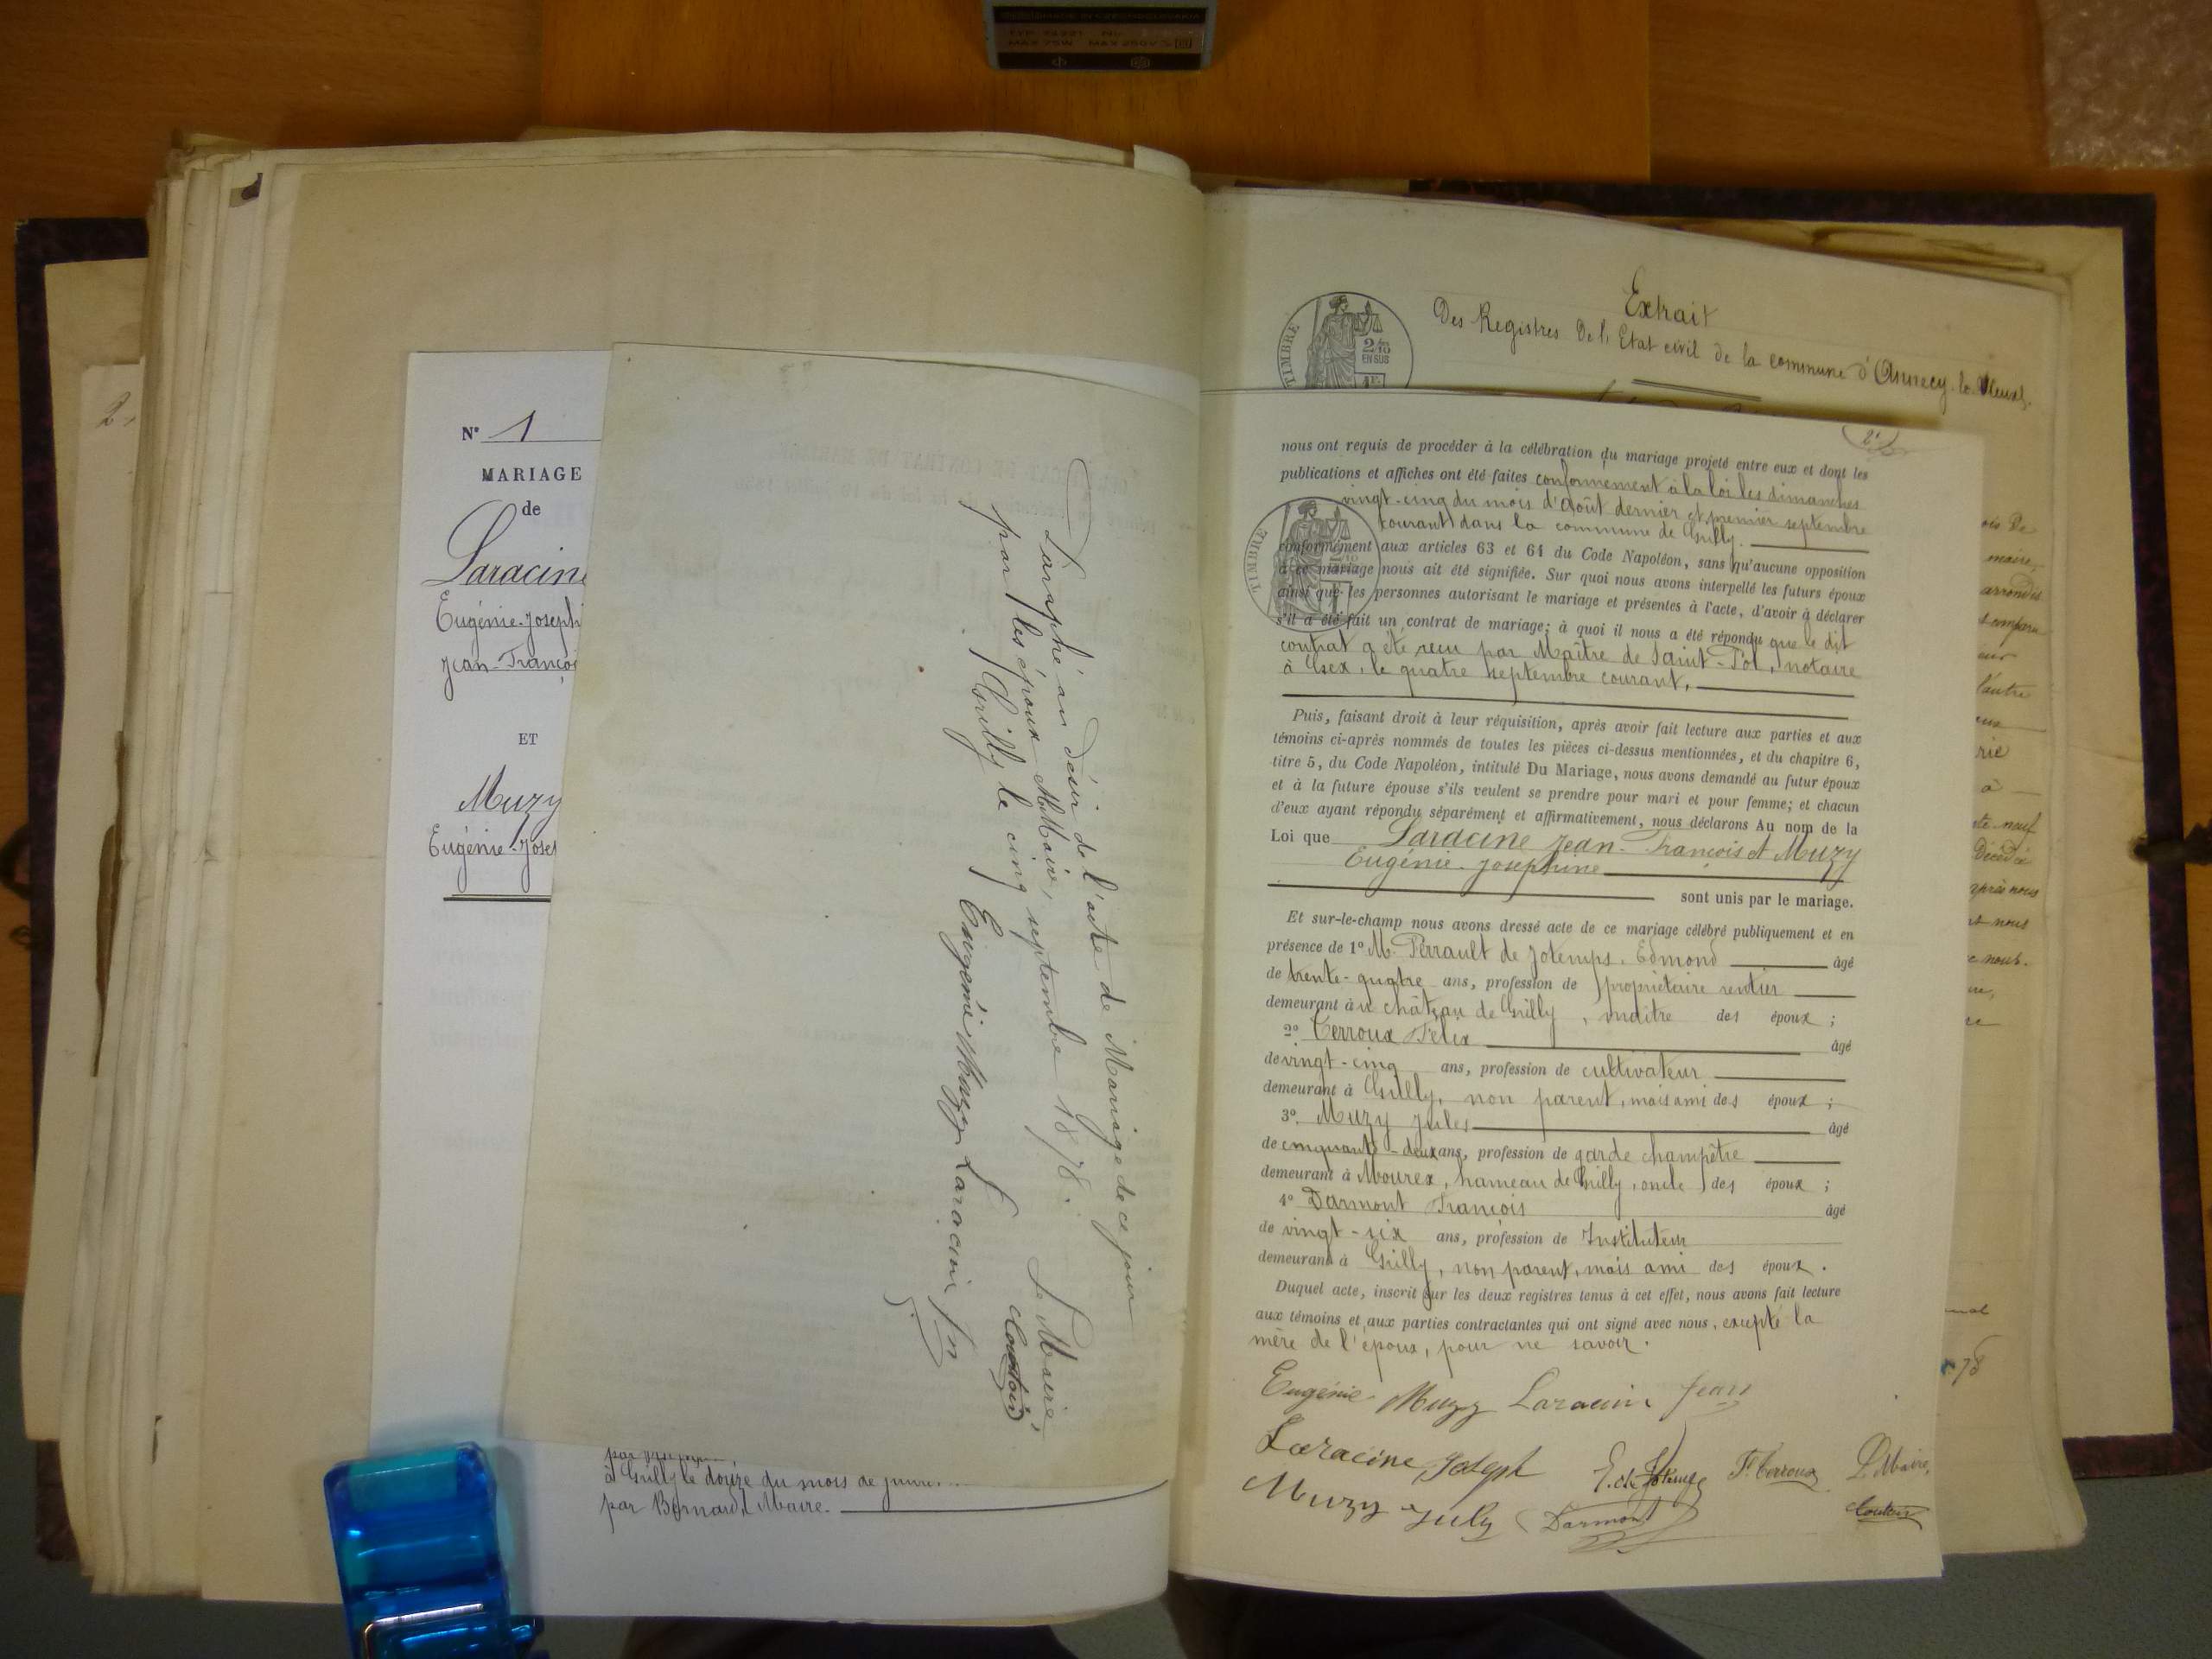 MADE IN CZECHOSLOVAKIA
MAX 75W MAX 250V
2.
N° 1
MARIAGE
de
Laracine
Eugénie-Joseph
Jean-Françoi
ET
Muzy
Eugénie-Josep
Paraphé au désir de l'acte de Mariage de ce jour
par les époux M. Maire,
Grilly le cinq septembre 1878.
Le Maire,
Eugénie Muzy Laracine Jn
à Grilly le douze du mois de
par Bernard, Maire.
Extrait
Des Registres De l'Etat civil de la commune d'Annecy-le-Vieux.
TIMBRE
2/10
EN SUS
nous ont requis de procéder à la célébration du mariage projeté entre eux et dont les
publications et affiches ont été faites conformément à la loi les dimanches
vingt-cinq du mois d'août dernier et premier septembre
courant dans la commune de Grilly.
TIMBRE
conformément aux articles 63 et 64 du Code Napoléon, sans qu'aucune opposition
à ce mariage nous ait été signifiée. Sur quoi nous avons interpellé les futurs époux
ainsi que les personnes autorisant le mariage et présentes à l'acte, d'avoir à déclarer
s'il a été fait un contrat de mariage; à quoi il nous a été répondu que le dit
contrat a été reçu par Maître de Saint-Pol, notaire
à Gex, le quatre septembre courant,
Puis, faisant droit à leur réquisition, après avoir fait lecture aux parties et aux
témoins ci-après nommés de toutes les pièces ci-dessus mentionnées, et du chapitre 6,
titre 5, du Code Napoléon, intitulé Du Mariage, nous avons demandé au futur époux
et à la future épouse s'ils veulent se prendre pour mari et pour femme; et chacun
d'eux ayant répondu séparément et affirmativement, nous déclarons Au nom de la
Loi que Laracine Jean-François et Muzy
Eugénie-Josephine
sont unis par le mariage.
Et sur-le-champ nous avons dressé acte de ce mariage célébré publiquement et en
présence de 1° M. Perrault de Jotemps. Edmond âgé
de trente-quatre ans, profession de propriétaire rentier
demeurant au château de Grilly, maître des époux;
2° Terroux Félix âgé
de vingt-cinq ans, profession de cultivateur
demeurant à Grilly, non parent, mais ami des époux;
3° Muzy Jules âgé
de cinquante-deux ans, profession de garde champêtre
demeurant à Mourex, hameau de Grilly, oncle des époux;
4° Darmont François âgé
de vingt-six ans, profession de Instituteur
demeurant à Grilly, non parent, mais ami des époux.
Duquel acte, inscrit sur les deux registres tenus à cet effet, nous avons fait lecture
aux témoins et aux parties contractantes qui ont signé avec nous, excepté la
mère de l'époux, pour ne savoir.
Eugénie Muzy Laracine Jean
Laracine Joseph E. de Jotemps F. Terroux Le Maire,
Muzy July Darmont
maire,
l'autre
à
neuf
Décédé
nous
nous
nous.
78